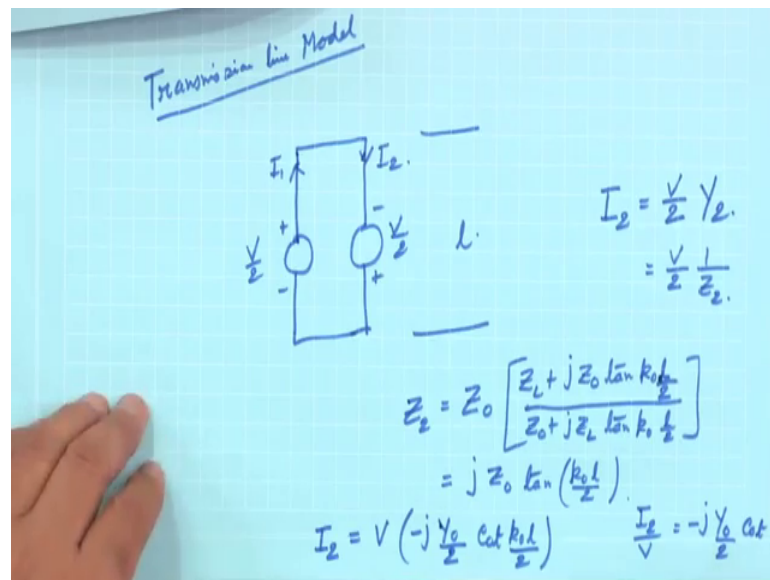 Transmission line Model
I₁ I₂.
+ -
V/2 V/2 l.
- +
I₂ = V/2 Y₂.
= V/2 1/Z₂.
Z₂ = Z₀ [ (Z_L + j Z₀ tan k₀ l/2) / (Z₀ + j Z_L tan k₀ l/2) ]
= j Z₀ tan (k₀l/2).
I₂ = V (-j Y₀/2 Cot k₀l/2) I₂/V = -j Y₀/2 Cot